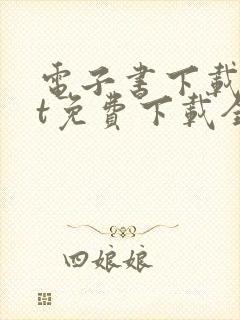 電子書下載
t免費下載全
四娘娘